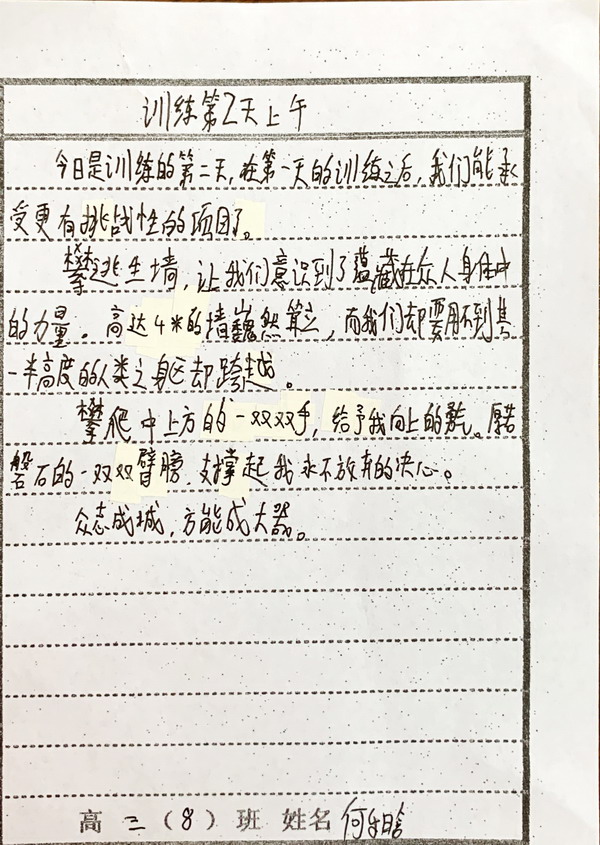 训练第2天上午
今日是训练的第二天,在第一天的训练之后,我们能承
受更有挑战性的项目了。
攀逃生墙,让我们意识到了蕴藏在众人身体中
的力量。高达4米的墙巍然耸立,而我们却要用不到其
一半高度的人类之身躯却跨越。
攀爬中上方的一双双手,给予我向上的勇气。厚若
磐石的一双双臂膀,支撑起我永不放弃的决心。
众志成城,方能成大器。
高二(8)班 姓名 何